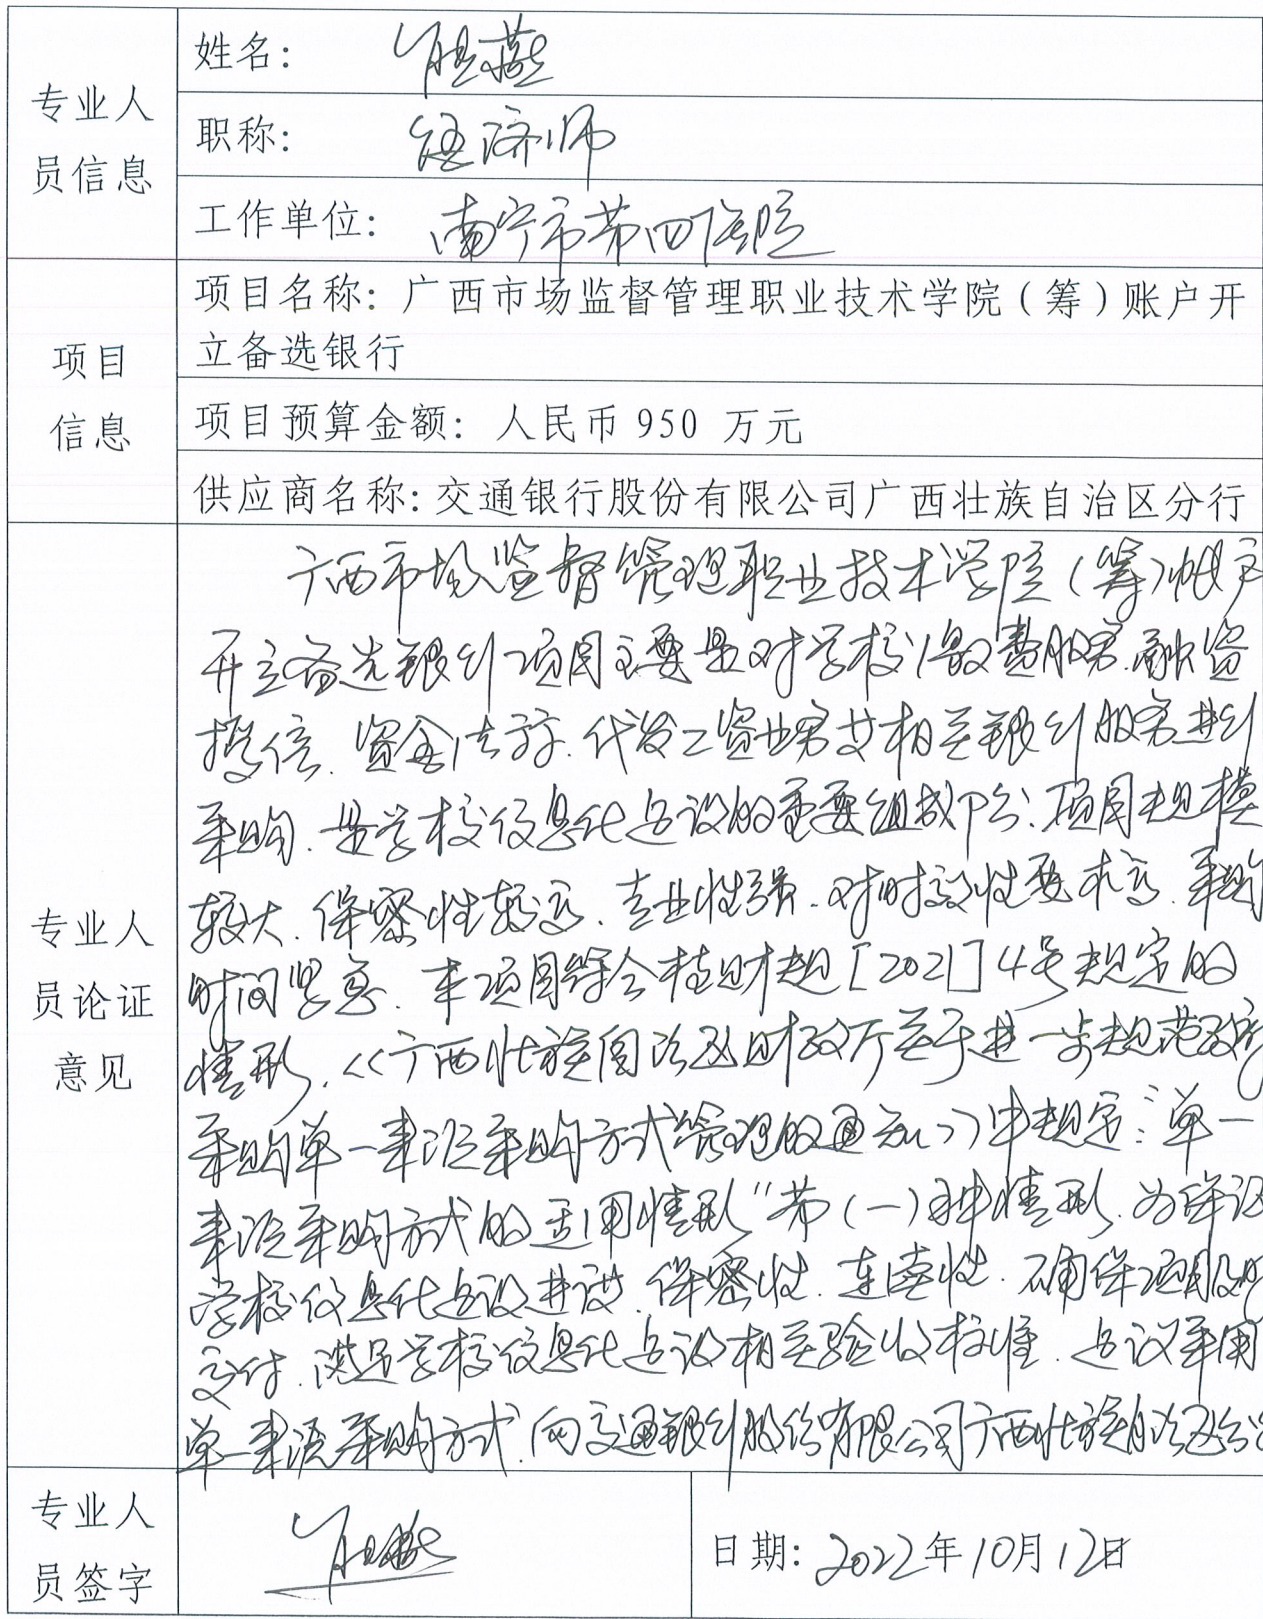 专业人
员信息
姓名：
职称： 经济师
工作单位： 南宁市第四医院
项目
信息
项目名称：广西市场监督管理职业技术学院（筹）账户开
立备选银行
项目预算金额：人民币 950 万元
供应商名称：交通银行股份有限公司广西壮族自治区分行
专业人
员论证
意见
广西市场监督管理职业技术学院（筹）帐户
开立备选银行项目主要是对学校缴费服务、融资
授信、资金存、代发工资业务及相关银行服务进行
采购、是学校信息化建设的重要组成部分、项目规模
较大、保密性较高、专业性强、对时效性要求高、采购
时间紧急、本项目符合桂财规[2021]4号规定的
情形、《广西壮族自治区财政厅关于进一步规范政府
采购单一来源采购方式管理的通知》中规定："单一
来源采购方式的适用情形"第（一）种情形、为保证
学校信息化建设进度、保密性、连续性、确保项目
交付、满足学校信息化建设相关验收标准、建议采用
单一来源采购方式、向交通银行股份有限公司广西壮族自治区分
专业人
员签字
日期：2022年10月12日